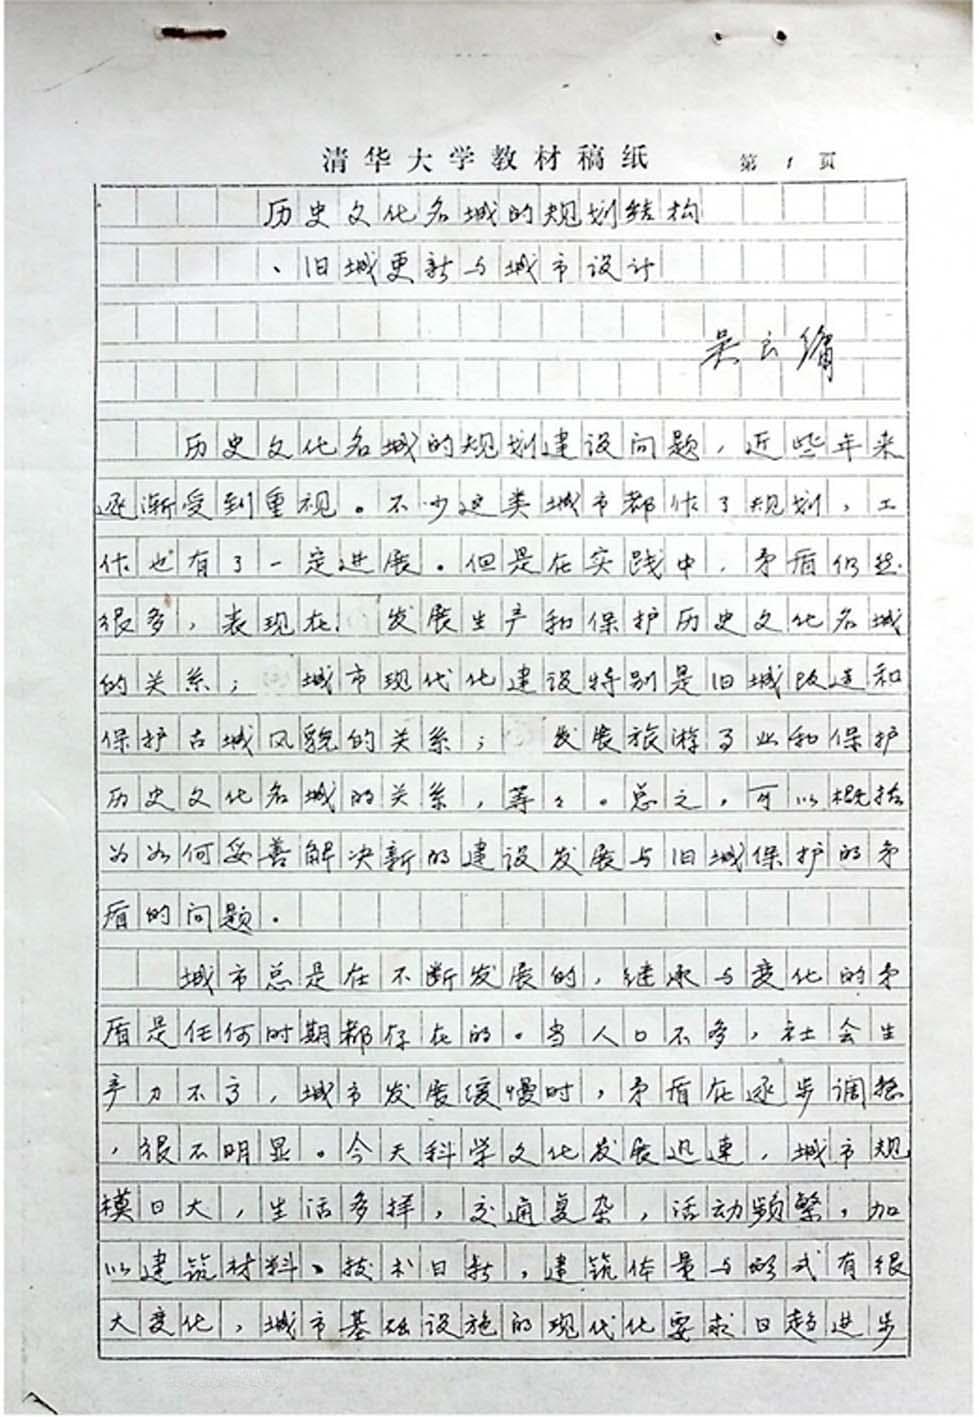 清华大学教材稿纸 第1页
历史文化名城的规划结构
、旧城更新与城市设计
吴良镛
历史文化名城的规划建设问题，近些年来
逐渐受到重视。不少这类城市都作了规划，工
作也有了一定进展。但是在实践中，矛盾仍然
很多，表现在 发展生产和保护历史文化名城
的关系； 城市现代化建设特别是旧城改造和
保护古城风貌的关系； 发展旅游事业和保护
历史文化名城的关系，等々。总之，可以概括
为如何妥善解决新的建设发展与旧城保护的矛
盾的问题。
城市总是在不断发展的，继承与变化的矛
盾是任何时期都存在的。当人口不多，社会生
产力不高，城市发展缓慢时，矛盾在逐步调整
，很不明显。今天科学文化发展迅速，城市规
模日大，生活多样，交通复杂，活动频繁，加
以建筑材料、技术日新，建筑体量与形式有很
大变化，城市基础设施的现代化要求日趋进步